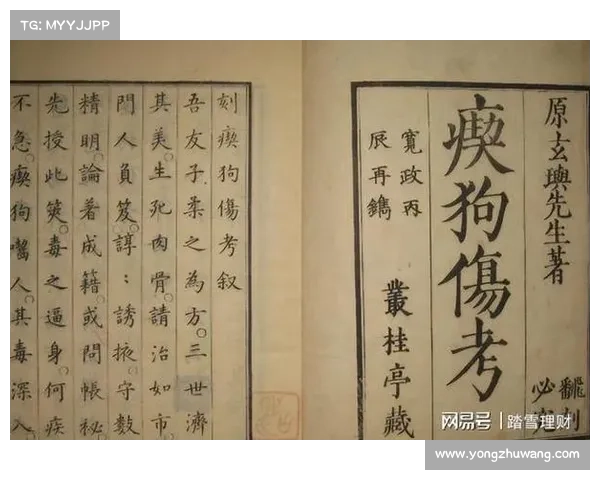 TG: MYYJJPP
原玄與先生著
飜刻
必究
瘈狗傷考
寬政丙
辰再鐫
叢桂亭藏
刻瘈狗傷考叙
吾友子柔之為方。三世濟
其美。生死肉骨。請治如市
門人負笈。諄〻誘掖。守數
精明。論著成籍。或問帳秘
先授此筴。毒之逼身。何疾
不急。瘈狗嚙人。其毒深入
网易号 | 踏雪理财
www.yongzhuwang.com